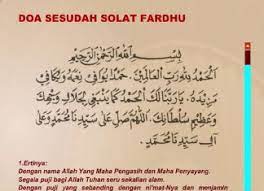 DOA SESUDAH SOLAT FARDHU
بِسْمِ اللهِ الرَّحْمٰنِ الرَّحِيْمِ
اَلْحَمْدُ لِلّٰهِ رَبِّ الْعَالَمِيْنَ. حَمْدًا يُوَافِيْ نِعَمَهُ وَيُكَافِئُ
مَزِيْدَهُ. يَارَبَّنَالَكَ الْحَمْدُ كَمَا يَنْبَغِيْ لِجَلَالِ وَجْهِكَ
وَعَظِيْمِ سُلْطَانِكَ. اَللّٰهُمَّ صَلِّ عَلَى سَيِّدِنَا مُحَمَّدٍ وَعَلَى
آلِ سَيِّدِنَا مُحَمَّدٍ.
1.Ertinya:
Dengan nama Allah Yang Maha Pengasih dan Maha Penyayang.
Segala puji bagi Allah Tuhan seru sekalian alam.
Dengan puji yang sebanding dengan ni'mat-Nya dan menjamin